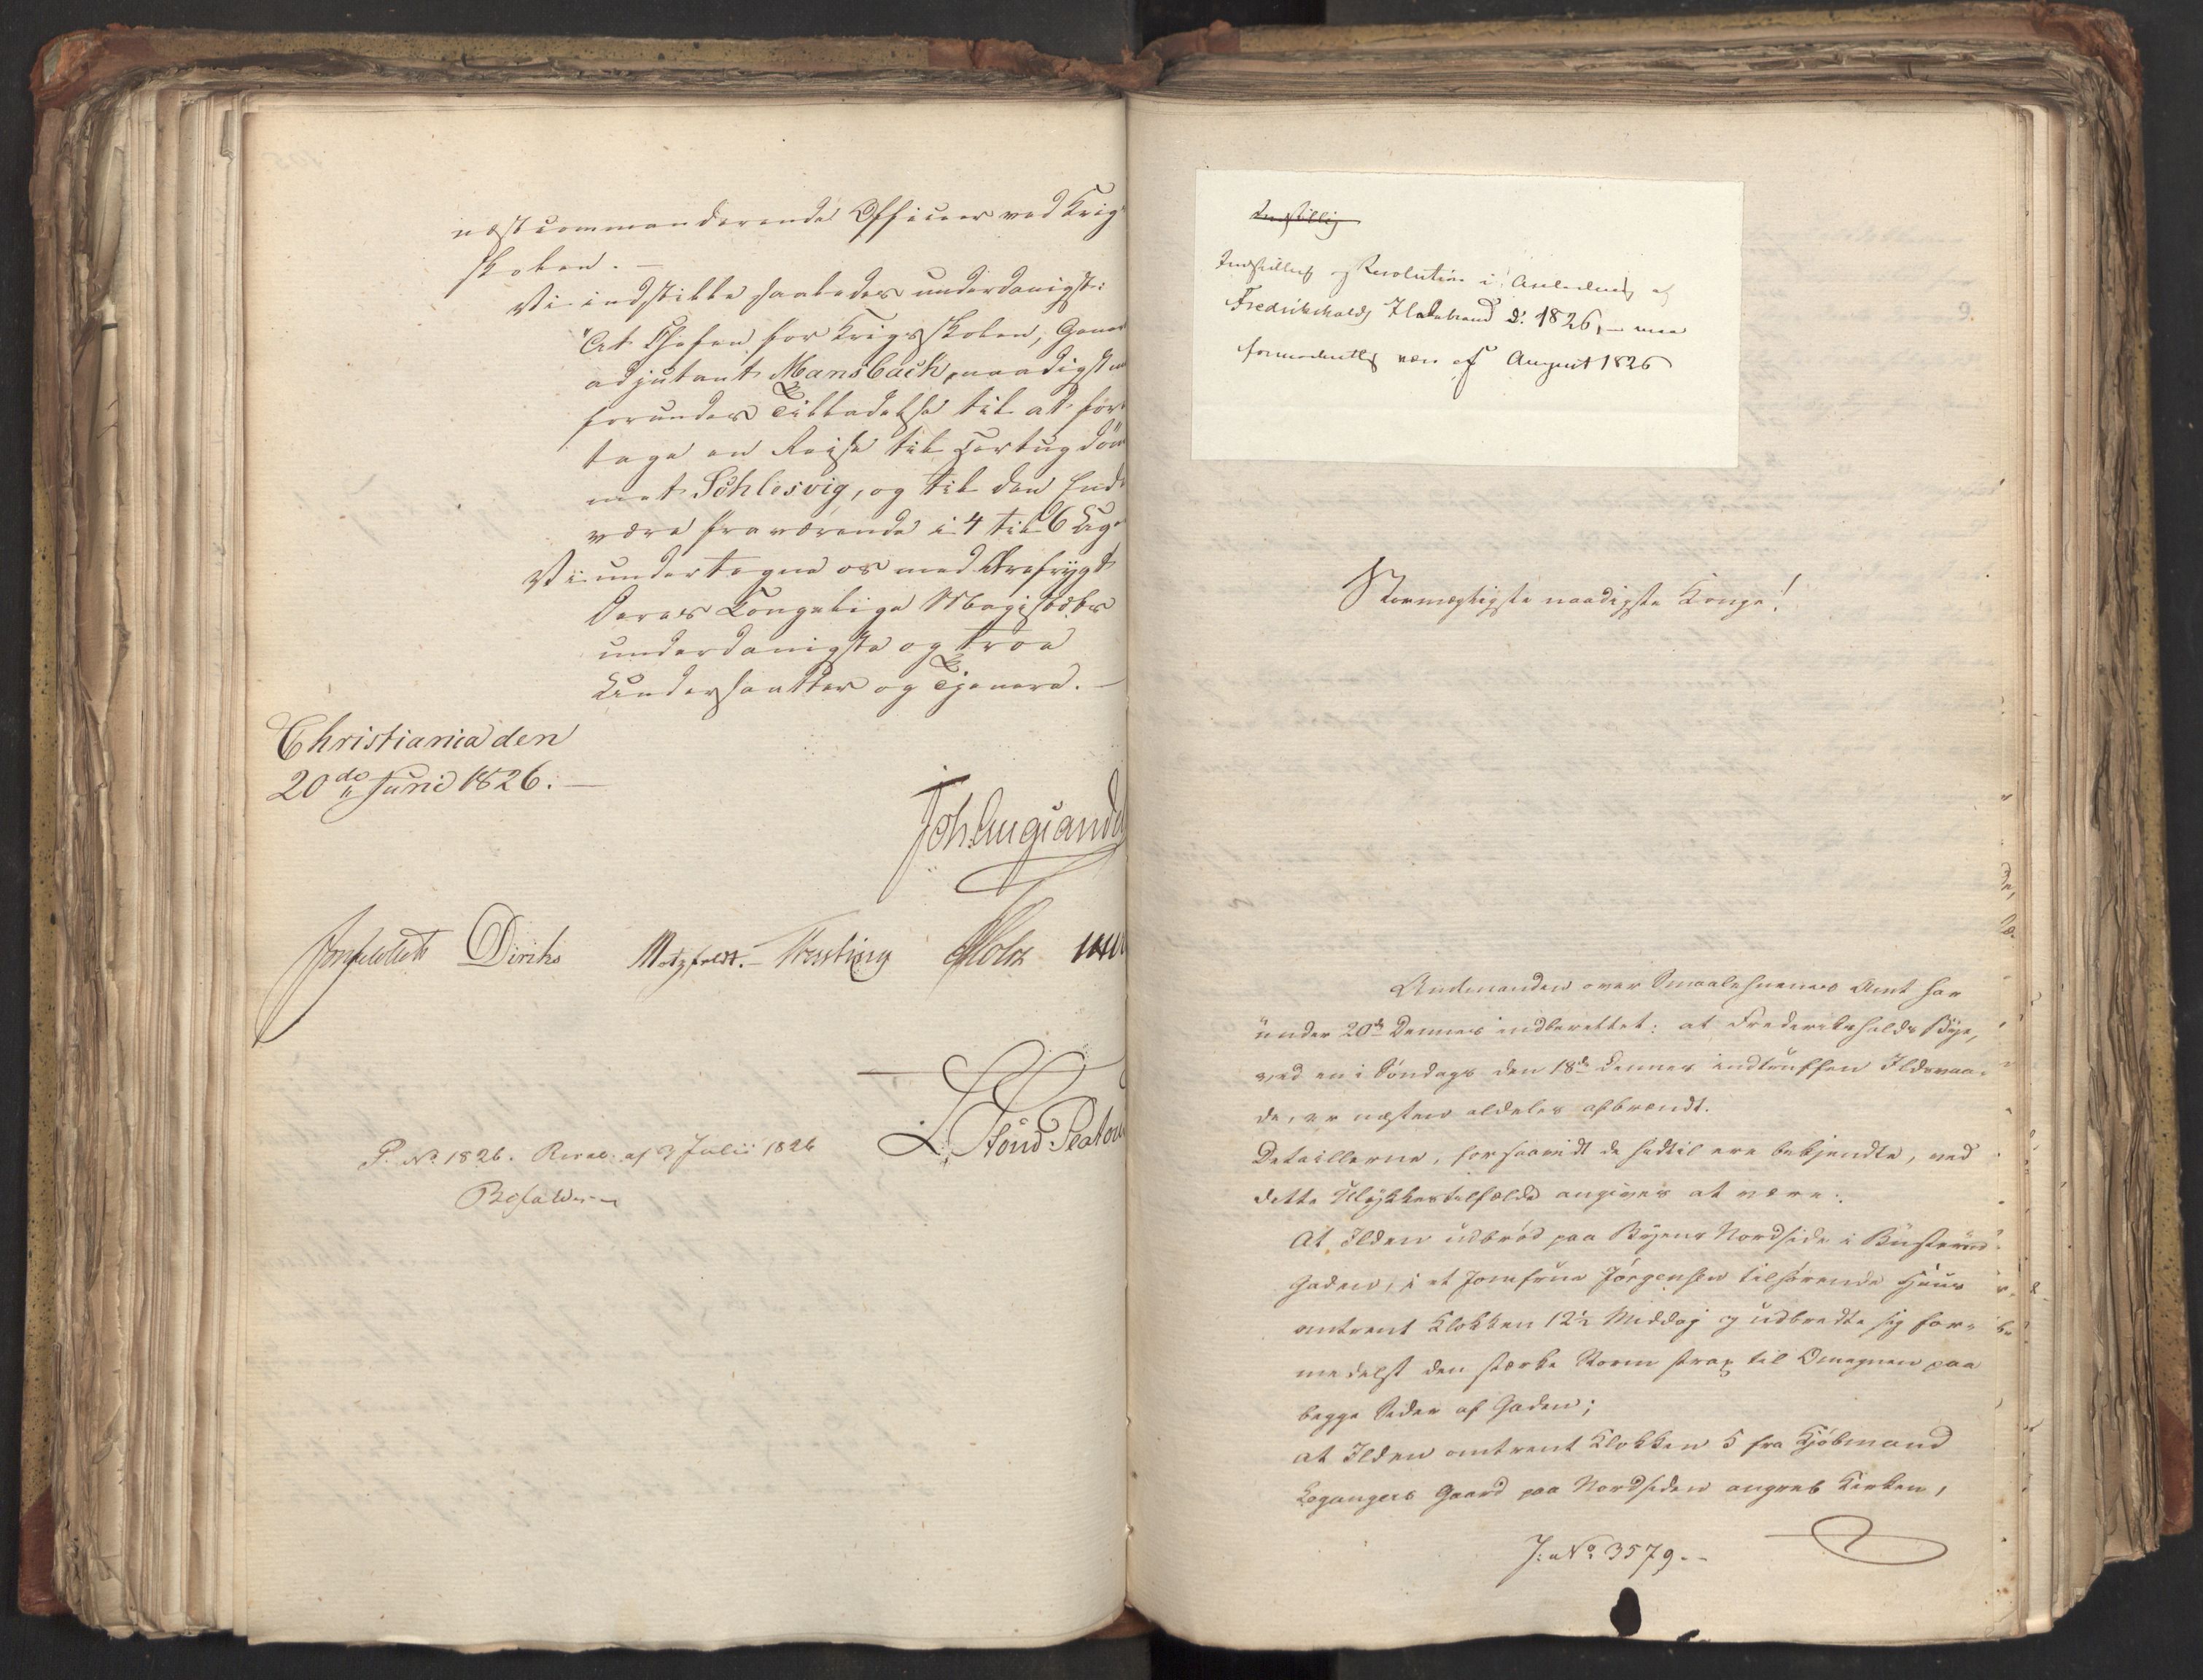 næstcommanderende Officeer ved Krigs
skolen. —
Vi indstille saaledes underdanigst:
"At Chefen for Krigsskolen, General
adjutant Mansbach, naadigst
forundes Tilladelse til at fore
tage en Reise til Hertugdöm
met Schlesvig, og til den Ende
være fraværende i 4 til 6 Uger
Vi undertegne os med Ærefrygt
Deres Kongelige Majestæts
underdanigste og troe
Undersaatter og Tjenere. —
Christiania den
20de Juni 1826. —
Joh. Aug. Sand
Diriks Motzfeldt. Treschow Holst
P. No 1826. Resol. af 3 Julii 1826
Indstilling
Indstilling og Resolution i Anledning af
Fredrikshalds Ildebrand 1826, — maa
formodentlig være af August 1826
Stormægtigste naadigste Konge!
Amtmanden over Smaalehnenes Amt har
under 20de Dennes indberettet: at Frederikshalds Bye,
ved en i Søndags den 18de dennes indtruffen Ildsvaa-
de, er næsten aldeles afbrændt.
Detaillerne, forsaavidt de hidtil ere bekjendte, ved
dette Ulykkestilfælde angives at være:
At Ilden udbröd paa Byens Nordside i
Gaden, i et Jomfrue Jörgensen tilhörende Huus
omtrent Klokken 12½ Middag og udbredte sig for-
medelst den stærke Storm strax til Omegnen paa
begge Sider af Gaden;
at Ilden omtrent Klokken 5 fra Kjöbmand
Gaard paa Nordsiden angreb Kirken,
J: No 3579. —